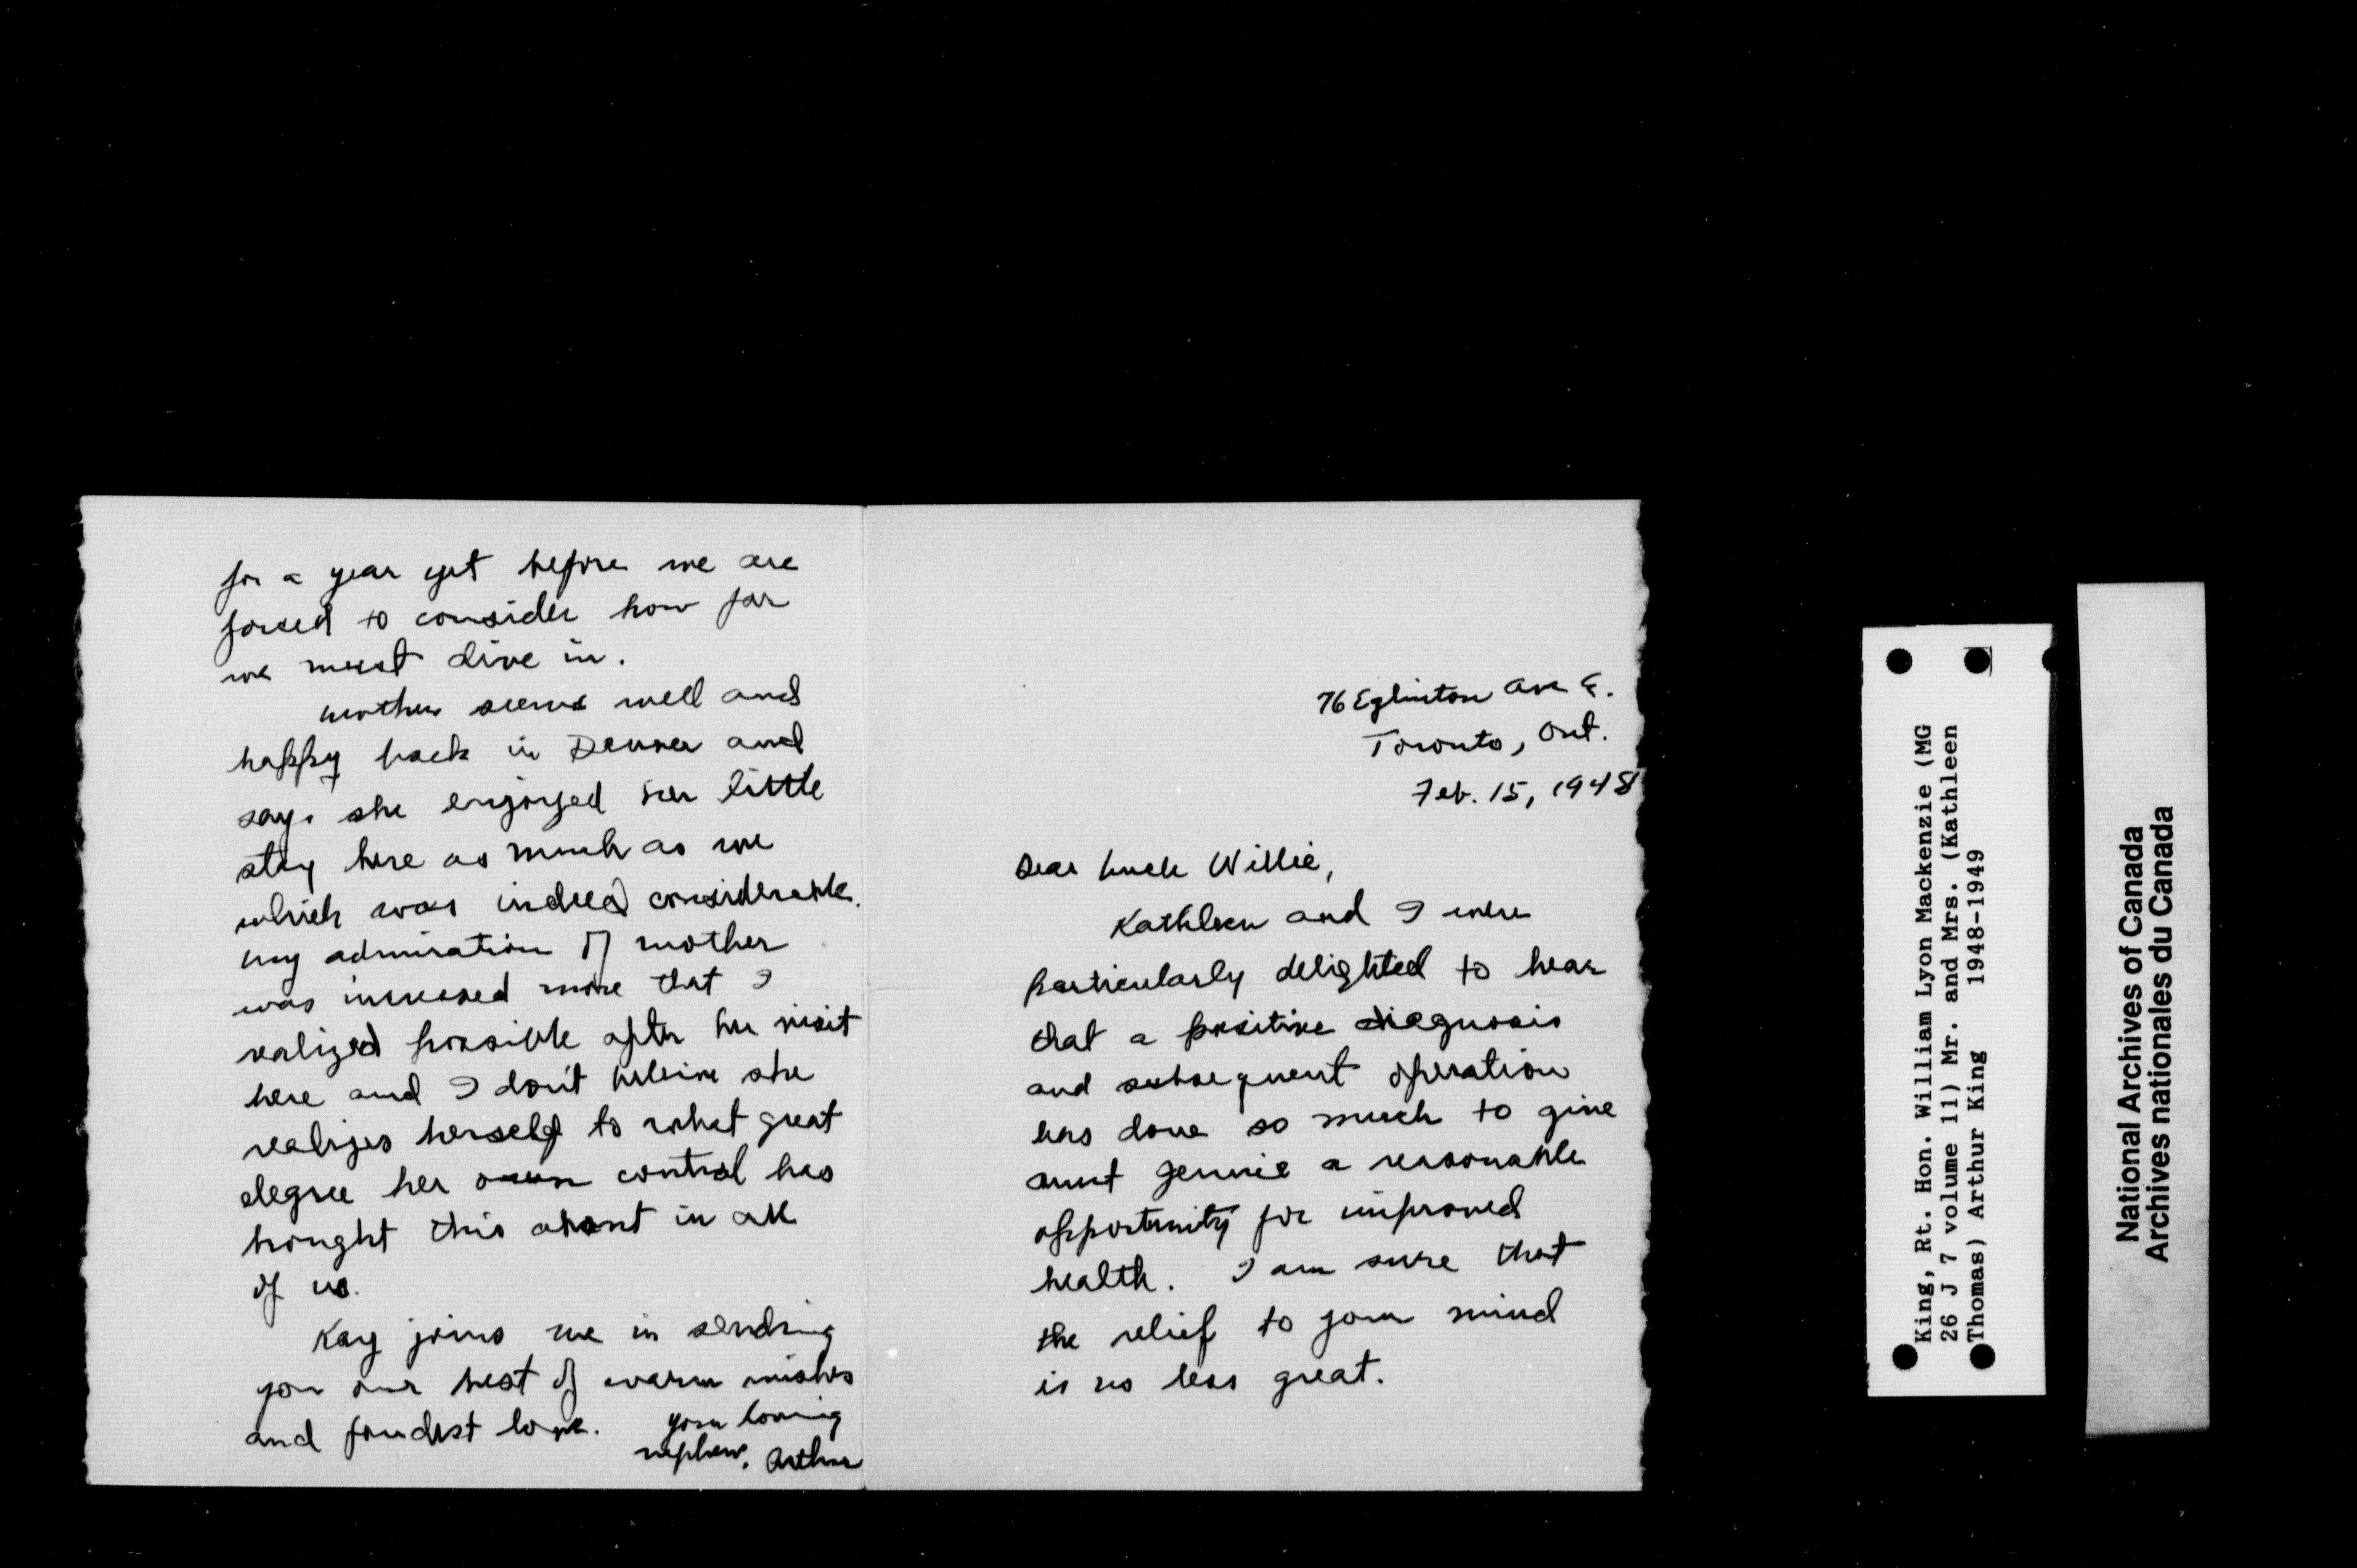 for a year yet before we are
forced to consider how far
we must dive in.
Mother seems well and
happy back in Denver and
says she enjoyed her little
stay here as much as we
which was indeed considerable.
My admiration of mother
was increased more that I
realized possible after her visit
here and I don't believe she
realizes herself to what great
degree her own control has
brought this about in all
of us.
Kay joins me in sending
you our best of warm wishes
and fondest love. Your loving
nephew, Arthur
76 Eglinton Ave E.
Toronto, Ont.
Feb. 15, 1948
Dear Uncle Willie,
Kathleen and I were
particularly delighted to hear
that a positive diagnosis
and subsequent operation
has done so much to give
aunt Jennie a reasonable
opportunity for improved
health. I am sure that
the relief to your mind
is no less great.
King, Rt. Hon. William Lyon Mackenzie (MG
26 J 7 volume 11) Mr. and Mrs. (Kathleen
Thomas) Arthur King 1948-1949
National Archives of Canada
Archives nationales du Canada